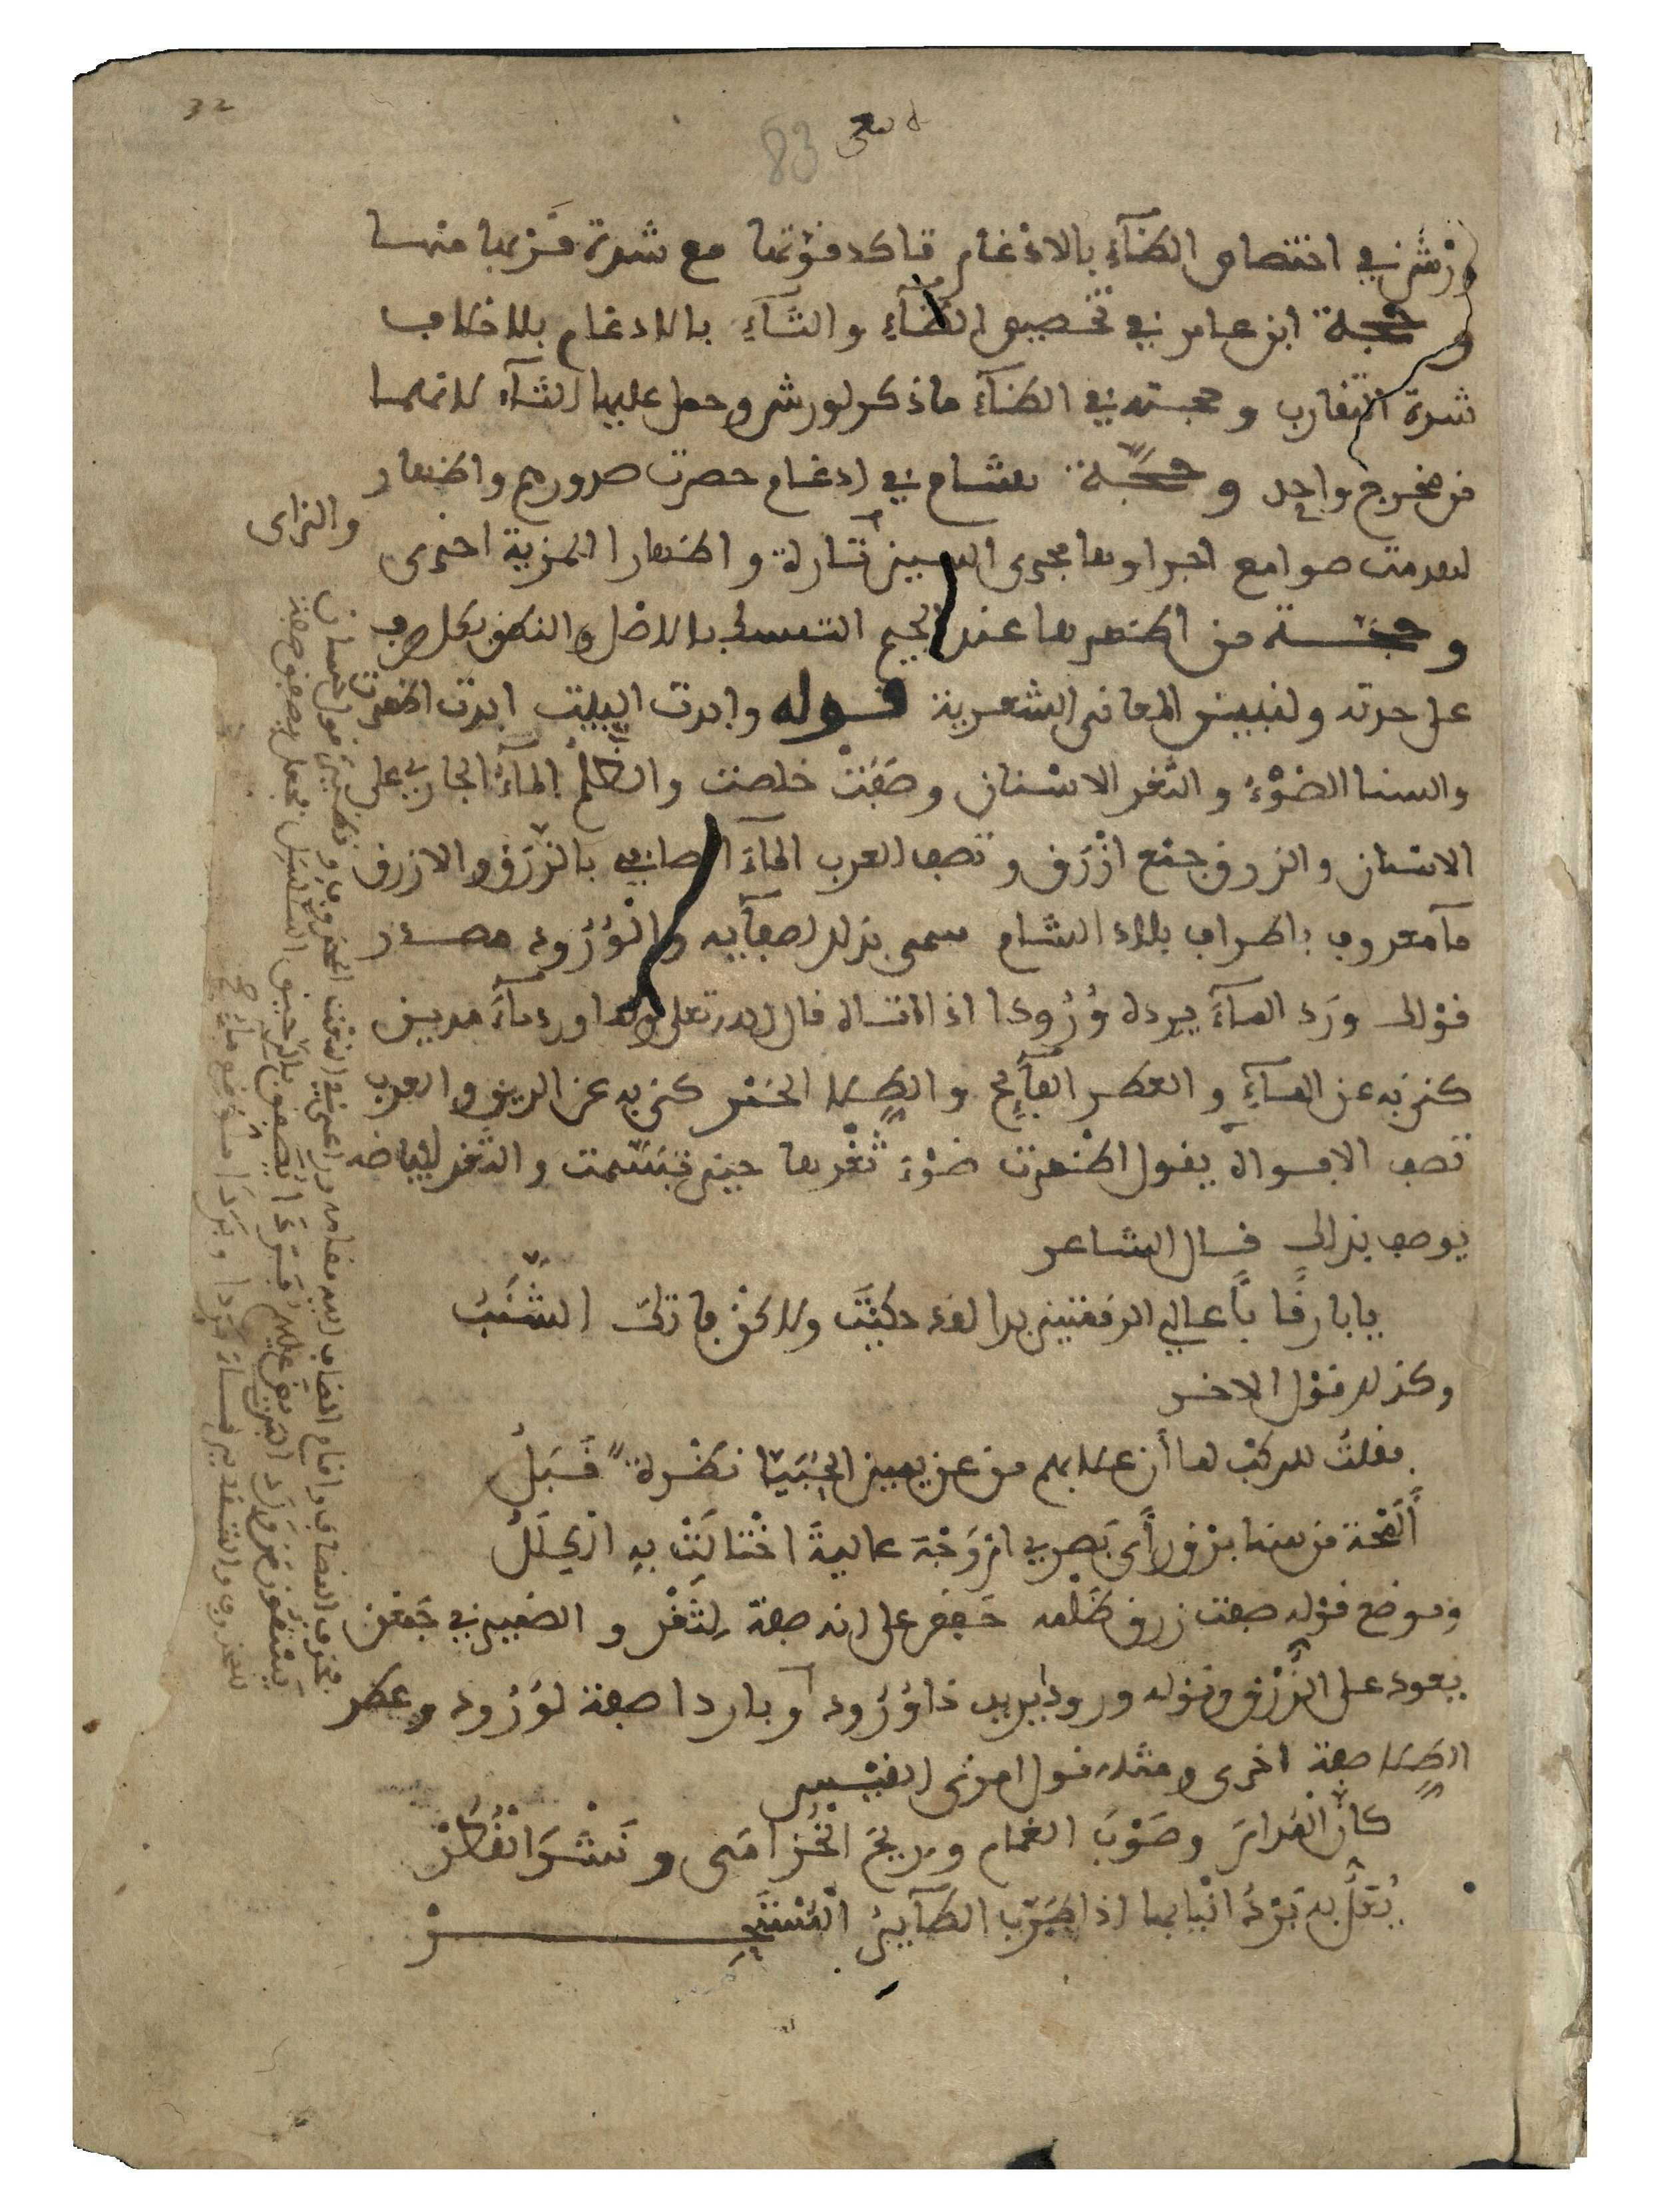 32
83
ورش في اختصاص الظآء بالادغام تاكد قوتها مع شدة قربها منها
و حجة ابن عامر في تخصيص الظآء والثآء بالادغام بلا خلاف
شدة التقارب و حجته في الظآء ما ذكر لورش وحمل عليها الثآء لانهما
من مخرج واحد و حجة هشام في ادغام حصرت صدورهم واظهار
لهدمت صوامع اجراوها مجرى السين تارة و اظهارا لمزية اخرى
والزاى
و حجة من اظهرها عند الجيم التمسك بالاصل والنطق بكل حرف
على حدته ولنبين المعانى الشعرية قوله وابدت البيت ابدت اظهرت
والسنا الضوء والثغر الاسنان وصفت خلصت والظلم المآء الجاري على
الاسنان والزرق جمع ازرق و تصف العرب المآء الصافي بالزرق والازرق
مآ معروف باطراف بلاد الشام سمي بذلك لصفآيه والورود مصدر
قولك ورد المآء يرده ورودا اذا اتاه قال الله تعلى ولما ورد مآء مدين
كنى به عن المآء والعطر الفآيح والطلا الخمر كنى به عن الريق والعرب
تصف الافواه يقول اظهرت ضوء ثغرها حين تبسمت والثغر لبياضه
يوصف بذلك قال الشاعر
يا بارقا باعالي الرقمتين بدا لقد حكيت ولاكن فاتك الشنب
وكذلك قول الاخر
فقلت للركب لما أن علا بهم من عن يمين الحبيا نظرة قبل
ألمحة من سنا برق رأى بصري ام وجه عالية اختالت به الكلل
وموضع قوله صفت زرق ظلمه خفض على انه صفة لثغر والضمير في جمعن
يعود على الزرق وقوله ورودا يريد ذا ورود او باردا صفة لورود وعطر
الطلا صفة اخرى ومثله قول امرئ القيس
كأن المدام وصوب الغمام وريح الخزامى ونشر القطر
يعل به برد انيابها اذا طرب الطآير المستحر